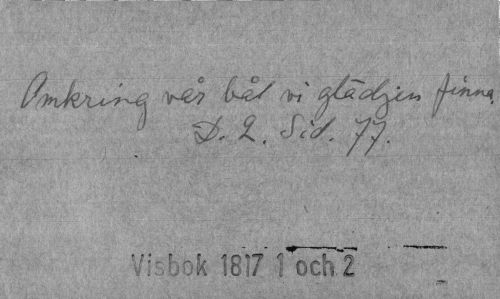 Omkring vår bål vi glädjen finna.
D. 2. Sid. 77.
Visbok 1817 1 och 2